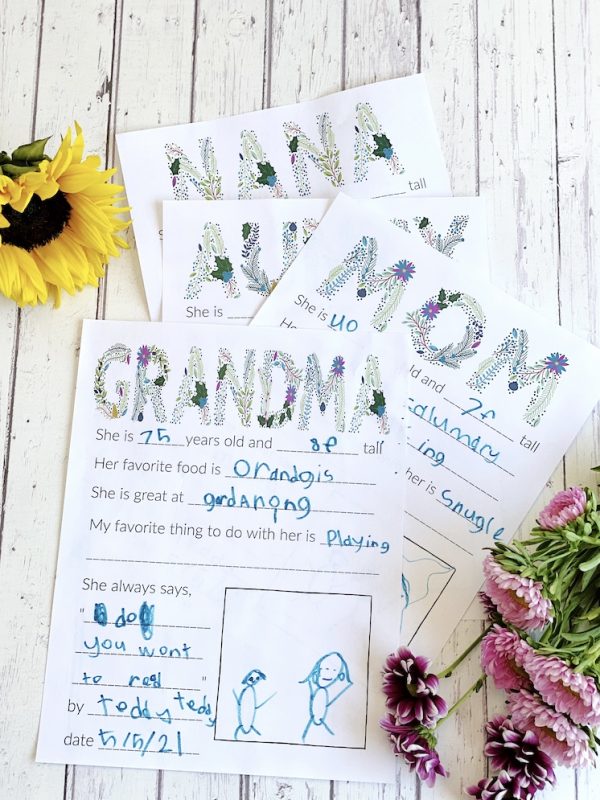 NANA
tall
She is
MOM
She is 40
ld and 7f tall
ing
her is Snugle
GRANDMA
She is 75 years old and 8f tall
Her favorite food is Orandgis
She is great at gardAnqng
My favorite thing to do with her is Playing
She always says,
" do
you wont
to read "
by teddy teddy
date 5/5/21